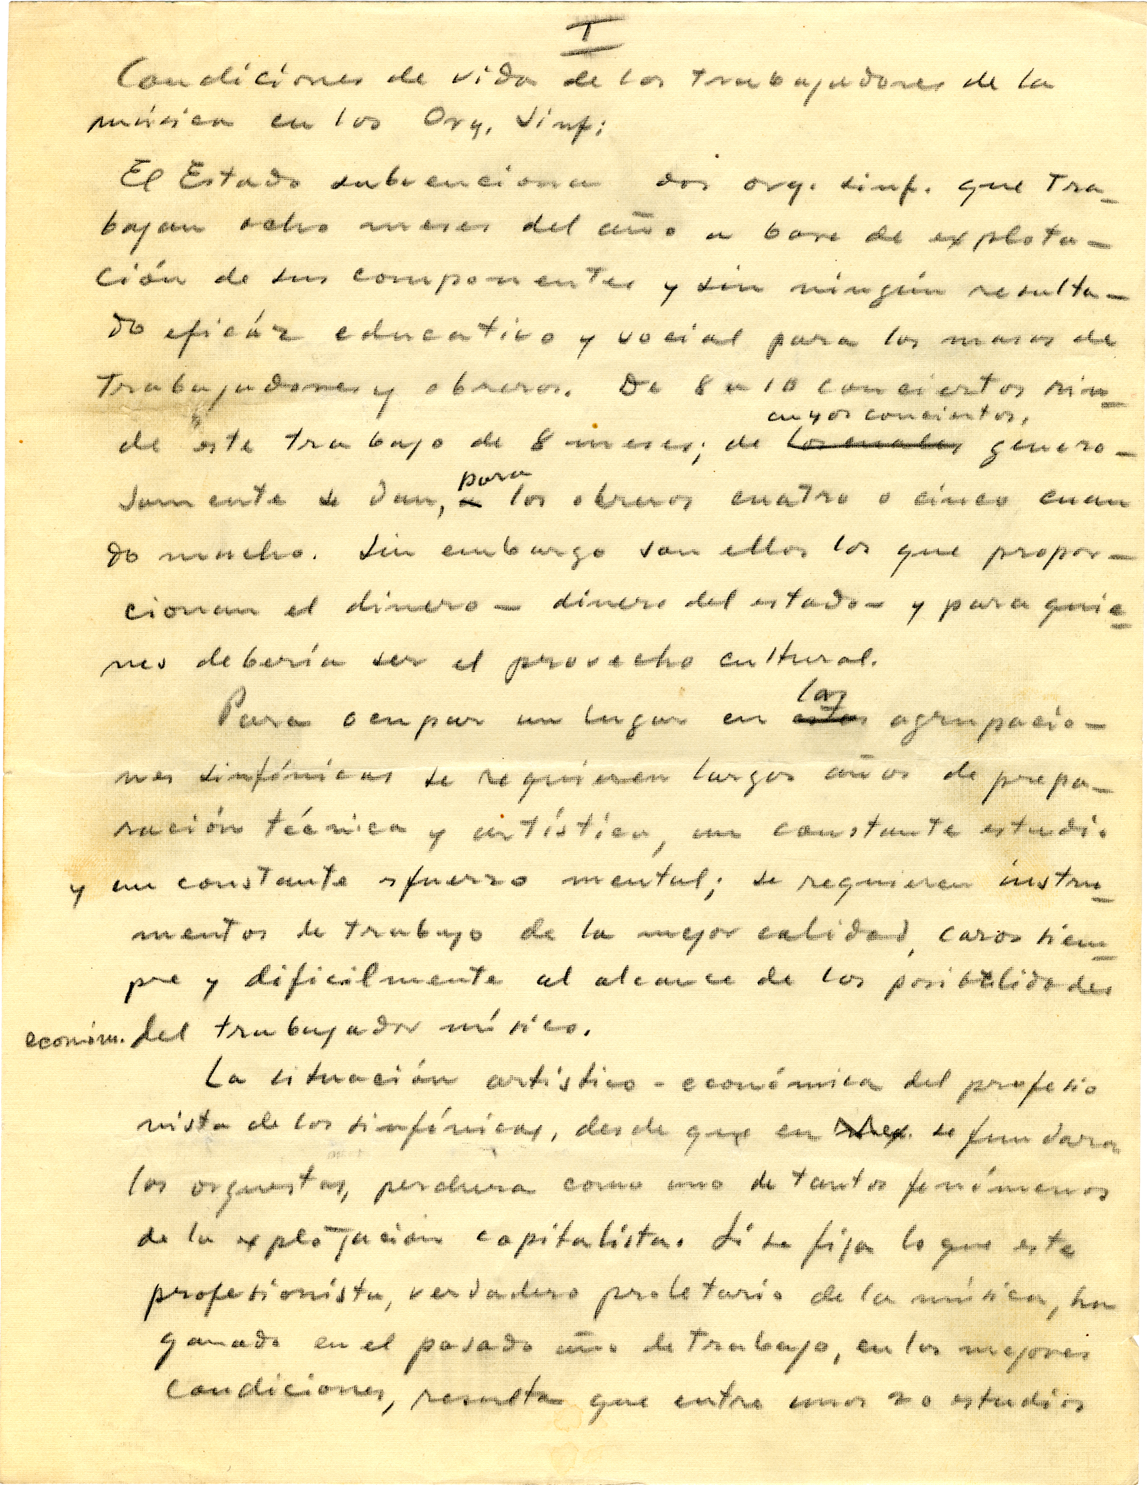 I
Condiciones de vida de los trabajadores de la
música en las Orq. Sinf:
El Estado subvenciona dos orq. sinf. que tra-
bajan ocho meses del año a base de explota-
ción de sus componentes y sin ningún resulta-
do eficáz educativo y social para las masas de
trabajadores y obreros. De 8 a 10 conciertos rin-
cuyos conciertos,
de este trabajo de 8 meses; de los cuales genero-
para
samente se dan, a los obreros cuatro o cinco cuan
do mucho. Sin embargo son ellos los que propor-
cionan el dinero - dinero del estado - y para quie-
nes debería ser el provecho cultural.
las
Para ocupar un lugar en estas agrupacio-
nes sinfónicas se requieren largos años de prepa-
ración técnica y artística, un constante estudio
y un constante esfuerzo mental; se requieren instru-
mentos de trabajo de la mejor calidad, caros siem-
pre y dificilmente al alcance de las posibilidades
económ. del trabajador músico.
La situación artístico-económica del profesio
nista de las sinfónicas, desde que en Mex. se fundara
las orquestas, perdura como uno de tantos fenómenos
de la explotación capitalista. Si se fija lo que este
profesionista, verdadero proletario de la música, ha
ganado en el pasado año de trabajo, en las mejores
condiciones, resulta que entre unos 20 estudios